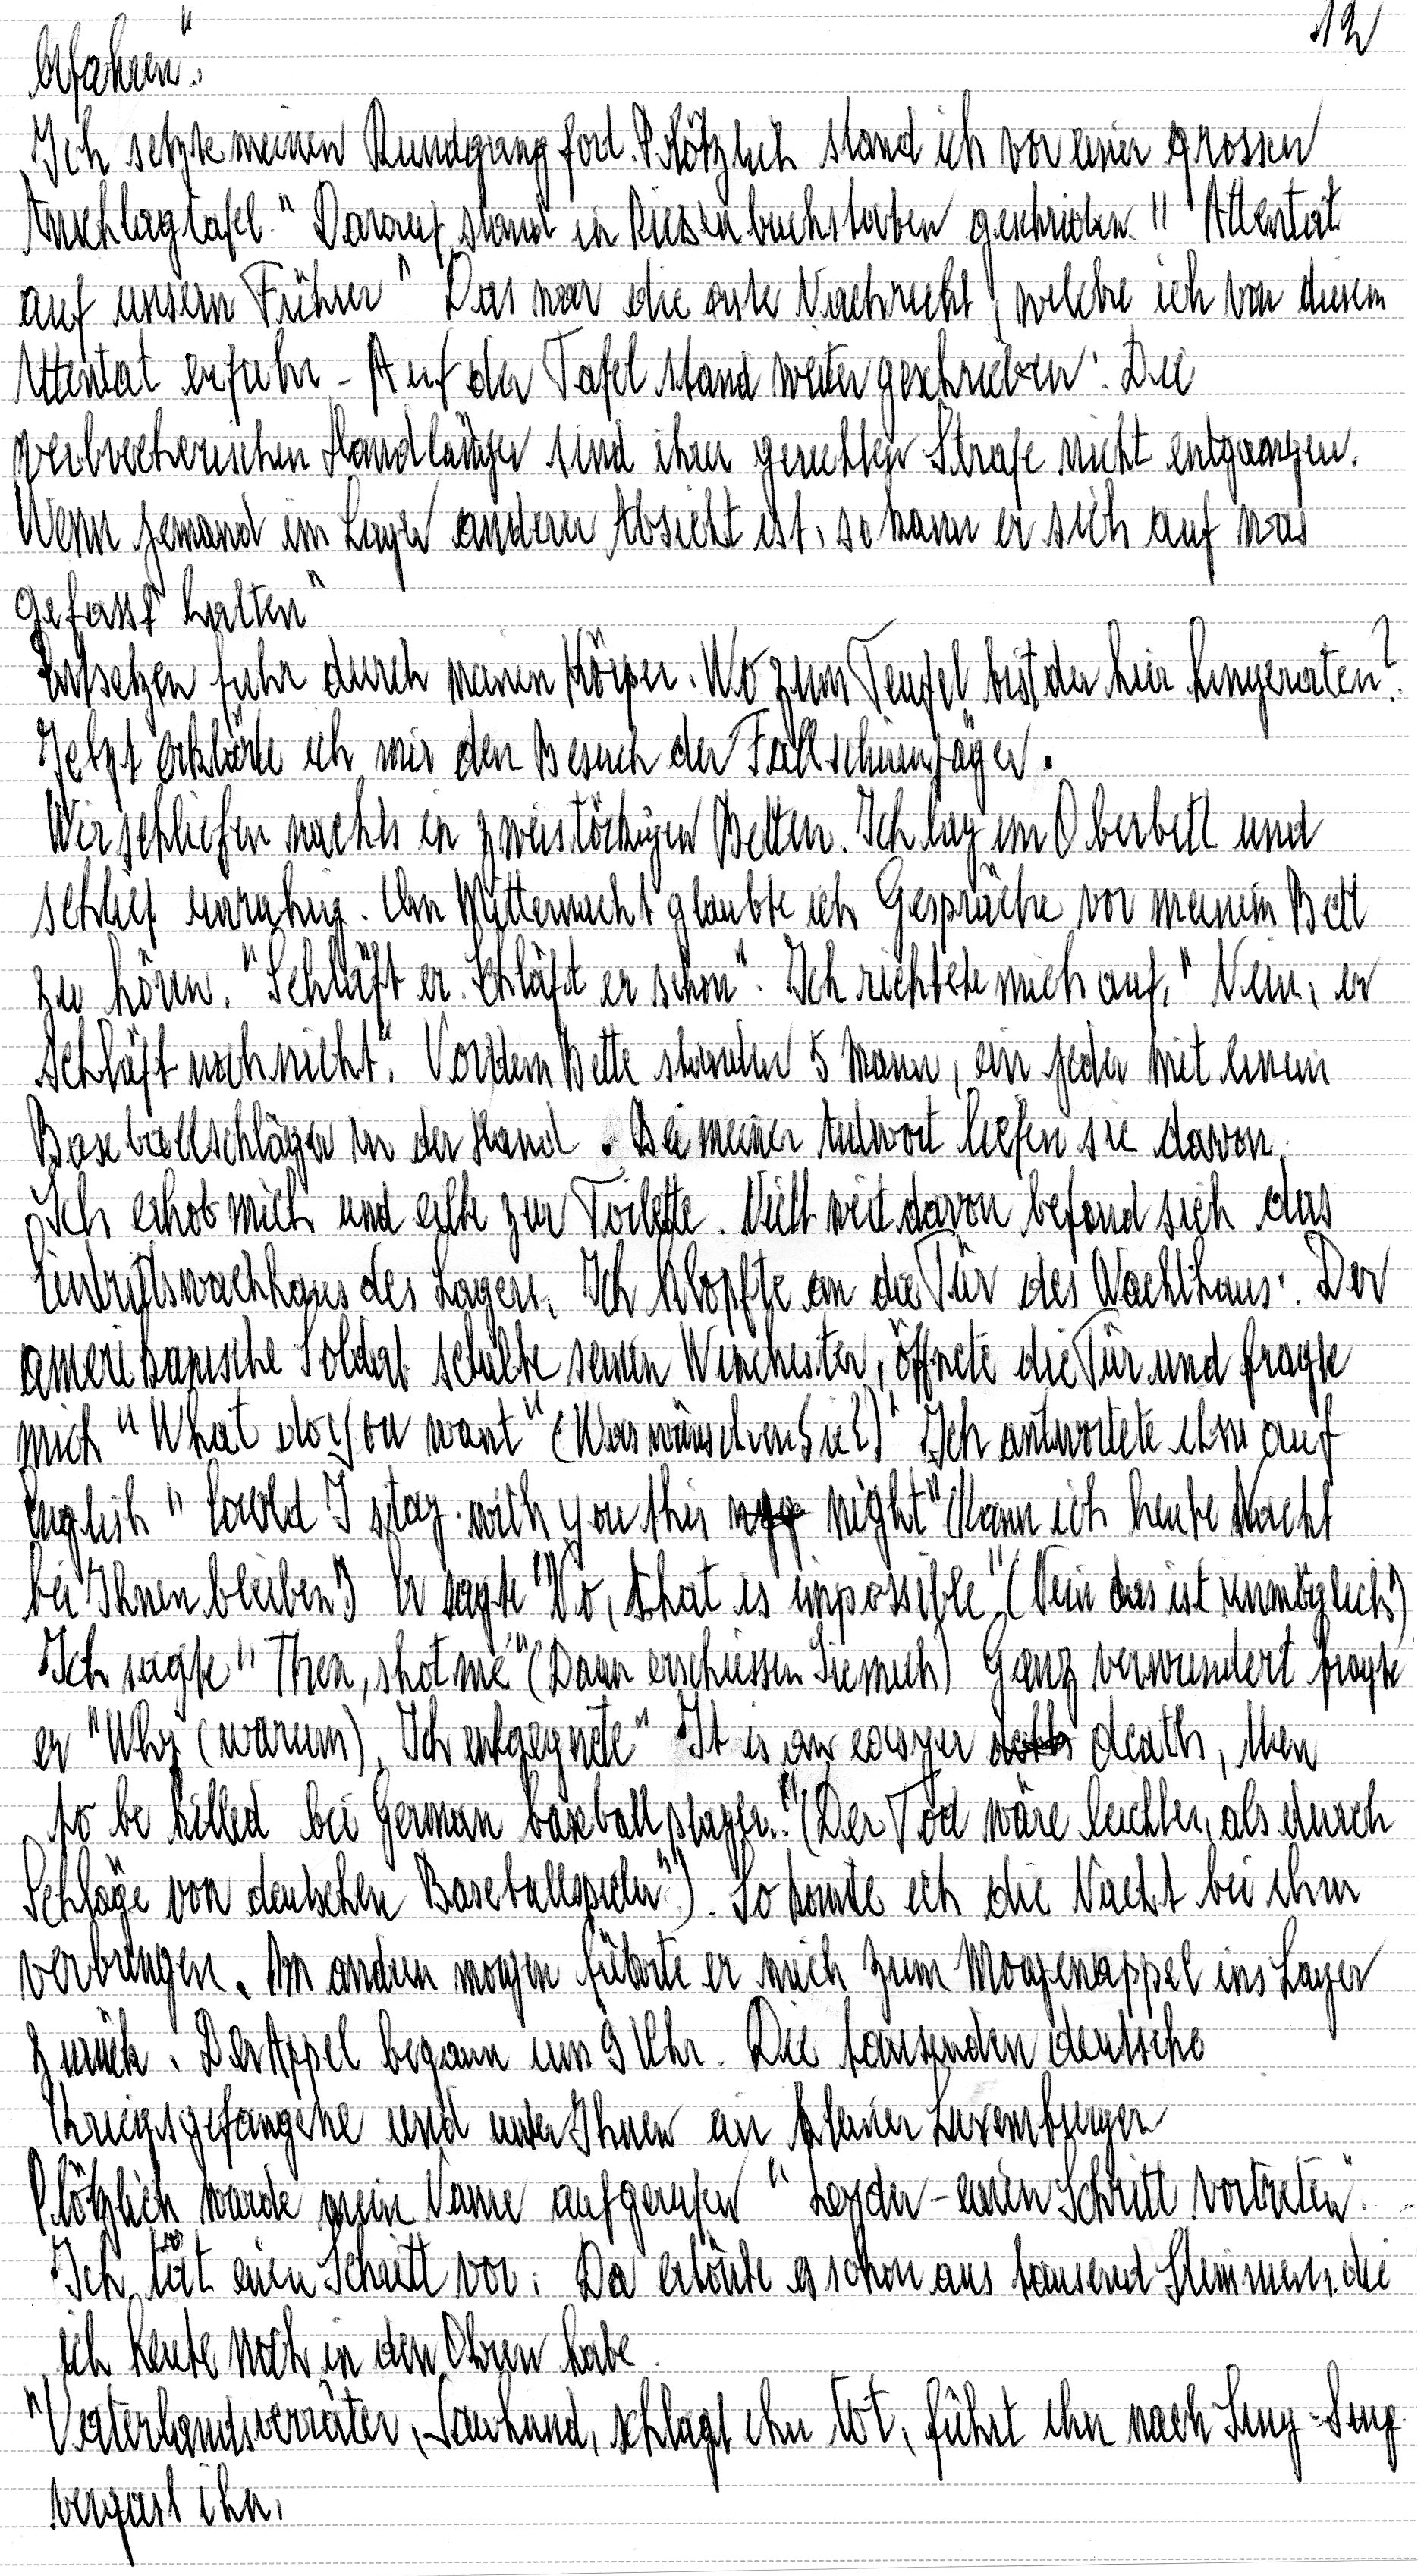 12
erfahren".
Ich setzte meinen Rundgang fort. Plötzlich stand ich vor einer grossen
Anschlagtafel. " Darauf stand in Riesenbuchstaben geschrieben " Attentat
auf unsern Führer" Das war die erste Nachricht, welche ich von diesem
Attentat erfuhr - Auf der Tafel stand weiter geschrieben: Die
verbrecherischen Handlänger sind ihrer gerechten Strafe nicht entgangen.
Wenn jemand im Lager anderer Absicht ist, so kann er sich auf was
gefasst halten"
Entsetzen fuhr durch meinen Körper. Wo zum Teufel bist du hier hingeraten?
Jetzt erklärte ich mir den Besuch der Fallschirmjäger.
Wir schliefen nachts in zweistöckigen Betten. Ich lag im Oberbett und
schlief unruhig. Um Mitternacht glaubte ich Gespräche vor meinem Bett
zu hören. "Schläft er. Schläft er schon". Ich richtete mich auf, " Nein, er
schläft noch nicht". Vor dem Bette standen 5 Mann, ein jeder mit einem
Baseballschläger in der Hand. Bei meiner Antwort liefen sie davon.
Ich erhob mich und eilte zur Toilette. Nicht weit davon befand sich das
Eintrittswachhaus des Lagers. Ich klopfte an die Tür des Wachthaus. Der
amerikanische Soldat schulte seinen Winchester, öffnete die Tür und fragte
mich "What do you want" (Was wünschen Sie?)" Ich antwortete ihm auf
English " Could I stay with you this night" (Kann ich heute Nacht
bei Ihnen bleiben?) Er sagte "No, that is impossible" (Nein das ist unmöglich)
Ich sagte "Then, shot me" (Dann erschiessen Sie mich) Ganz verwundert fragte
er "Why (warum). Ich entgegnete" It is an easyer death, then
to be killed bei German baseball player." (Der Tod wäre leichter, als durch
Schläge von deutschen Baseballspieler"). So konnte ich die Nacht bei ihm
verbringen. Am andern morgen führte er mich zum Morgenappel ins Lager
zurück. Der Appel begann um 9 Uhr. Die tausenden deutsche
Kriegsgefangene und unter Ihnen ein kleiner Luxemburger
Plötzlich wurde mein Name aufgerufen " - einen Schritt vortreten".
Ich tat einen Schritt vor. Da ertönte es schon aus tausend Stimmen, die
ich heute noch in den Ohren habe.
"Vaterlandsverräter, Sauhund, schlagt ihn tot, führt ihn nach Sing-Sing
vergast ihn.